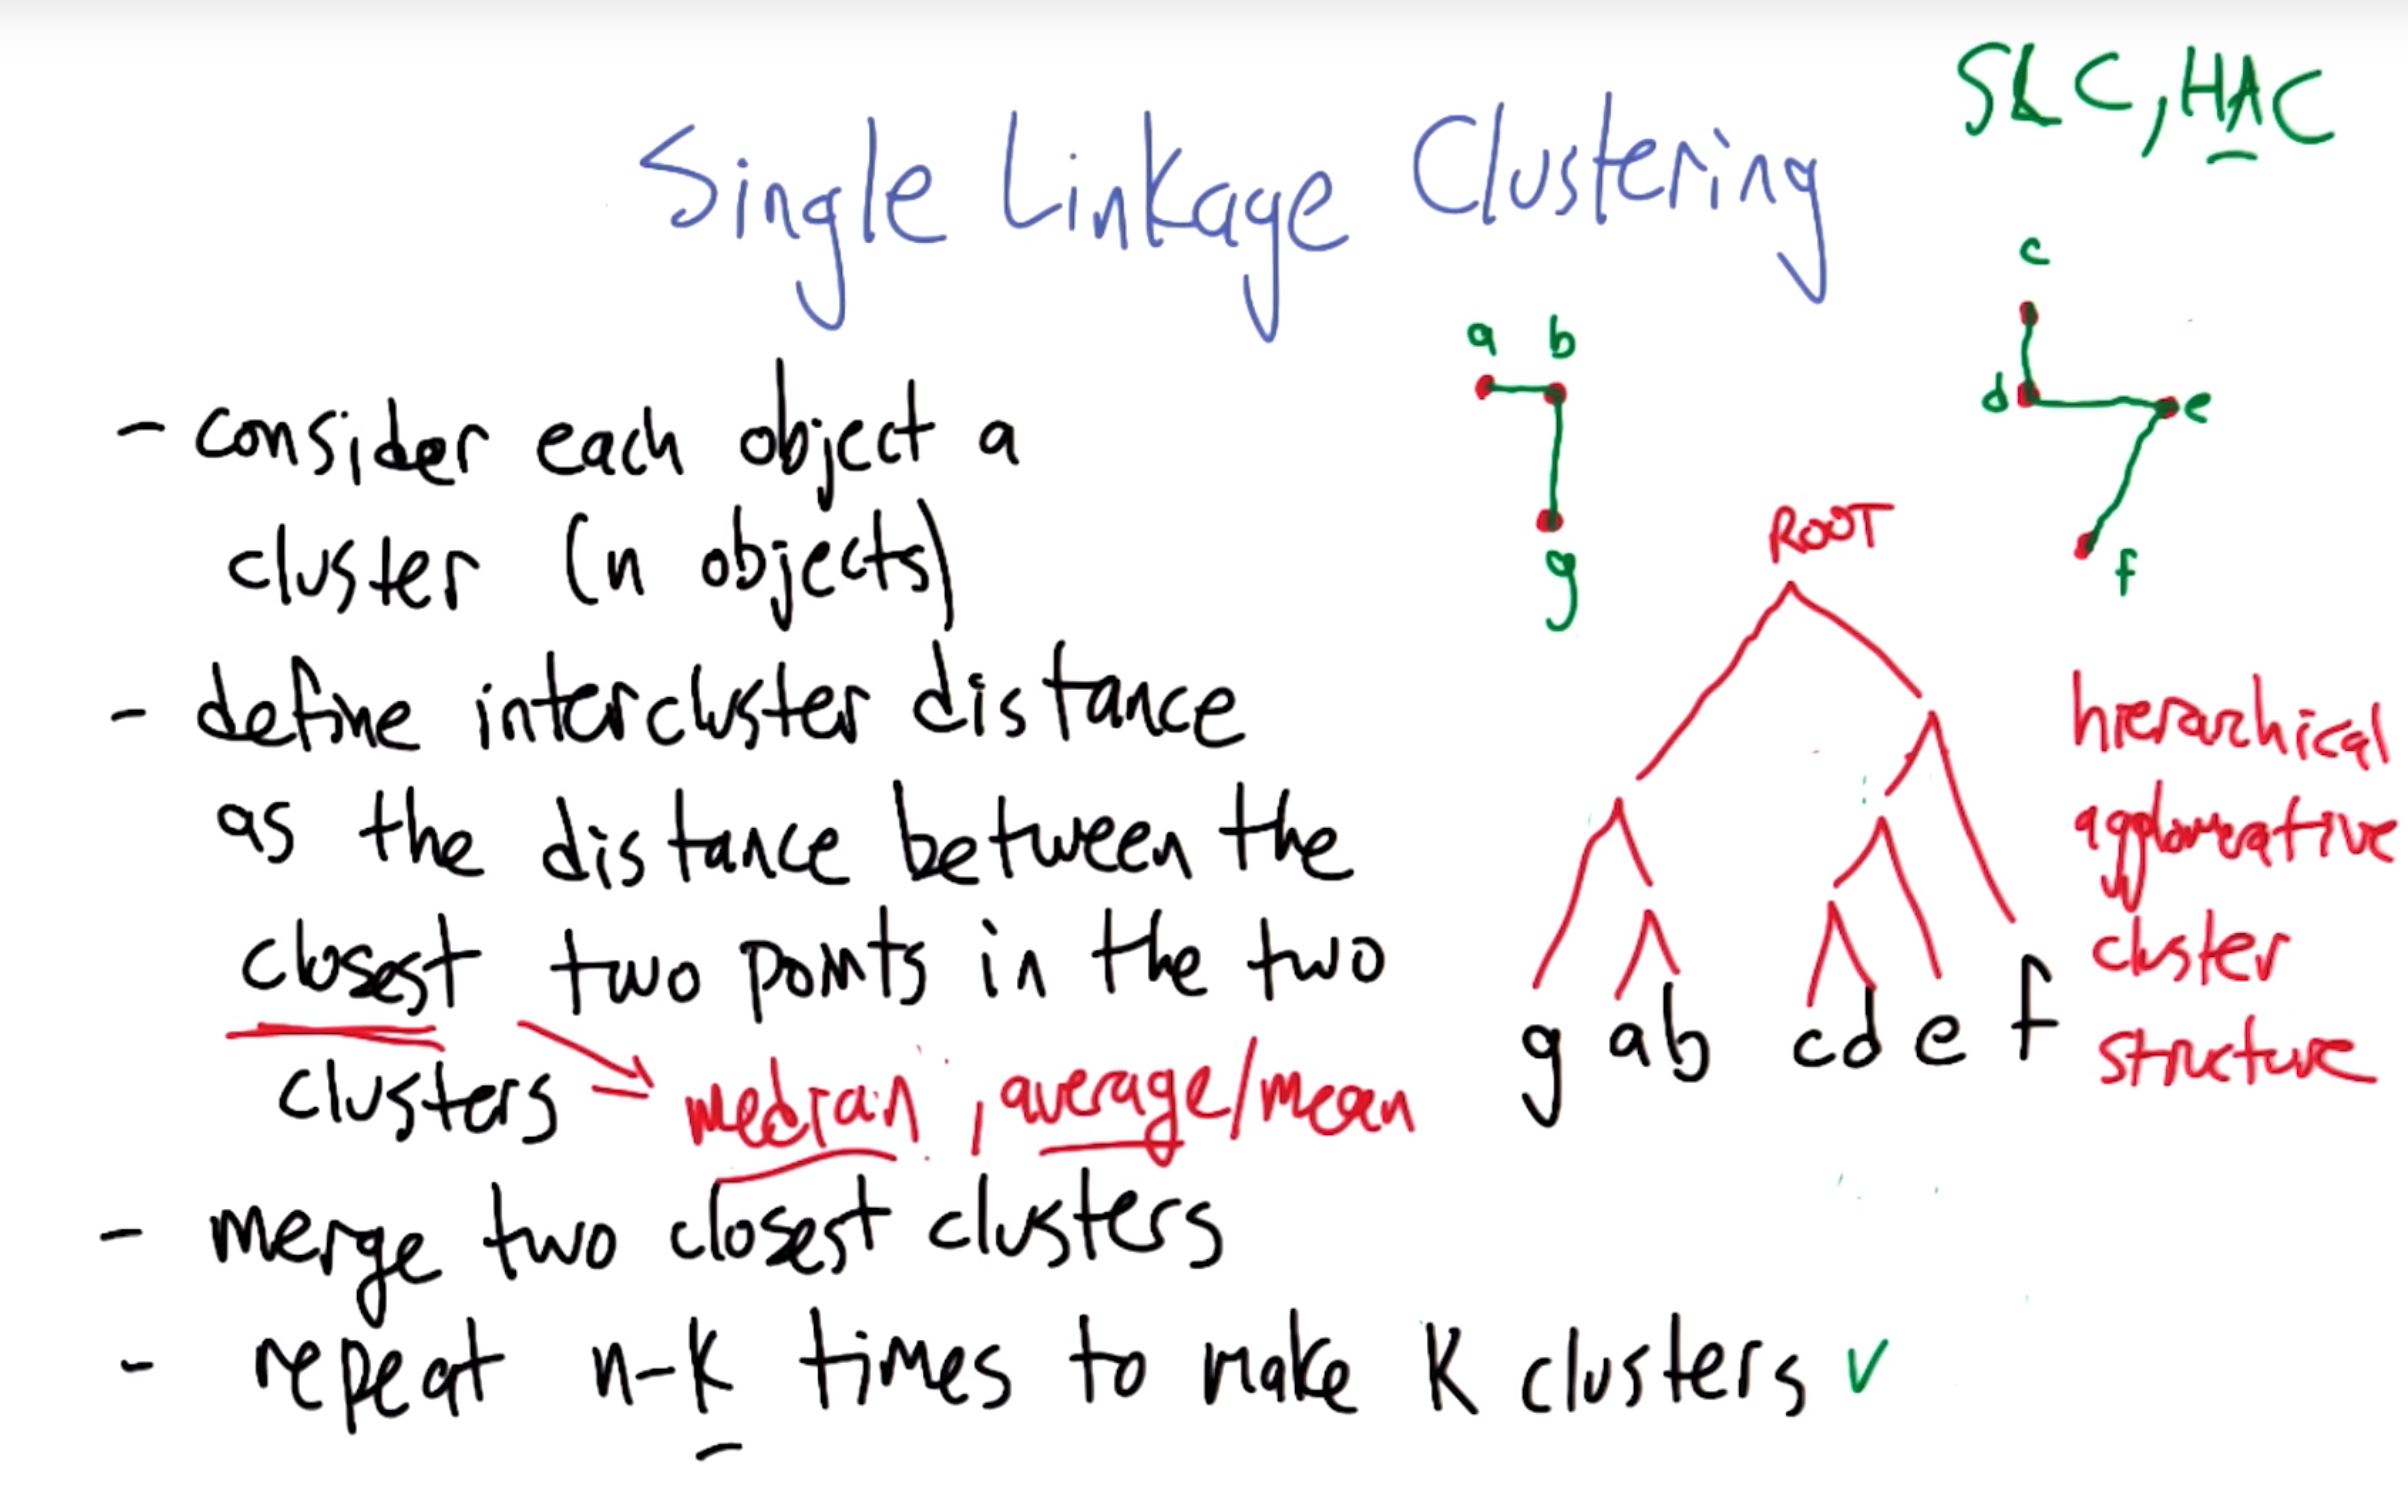 SLC, HAC
Single Linkage Clustering
- consider each object a
cluster (n objects)
- define intercluster distance
as the distance between the
closest two points in the two
clusters
median, average/mean
- merge two closest clusters
- repeat n-k times to make K clusters
a b
g
c
d e
f
ROOT
g ab cd e f
hierarchical
agglomerative
cluster
structure